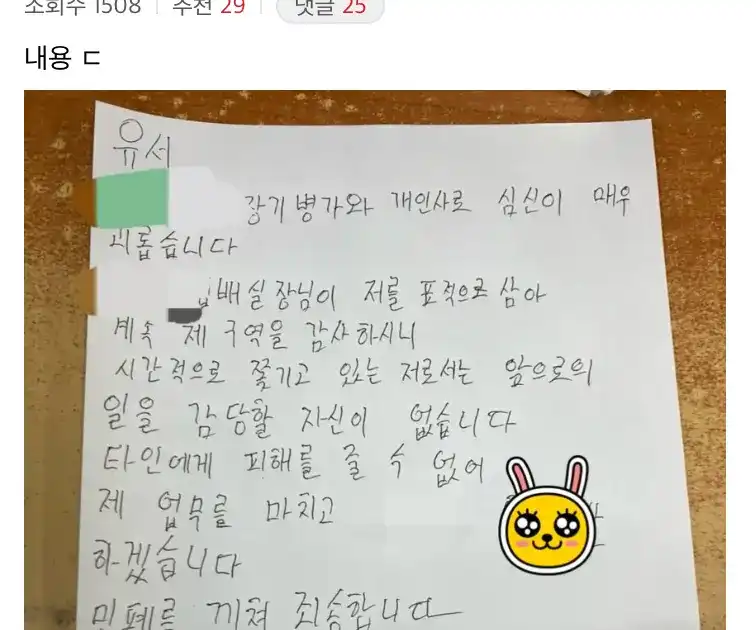 조회수 1508 추천 29 댓글 25
내용 ㄷ
유서
장기병가와 개인사로 심신이 매우
괴롭습니다
배실장님이 저를 표적으로 삼아
계속 제 구역을 감사하시니
시간적으로 쫓기고 있는 저로서는 앞으로의
일을 감당할 자신이 없습니다
타인에게 피해를 줄 수 없어
제 업무를 마치고
하겠습니다
민폐를 끼쳐 죄송합니다